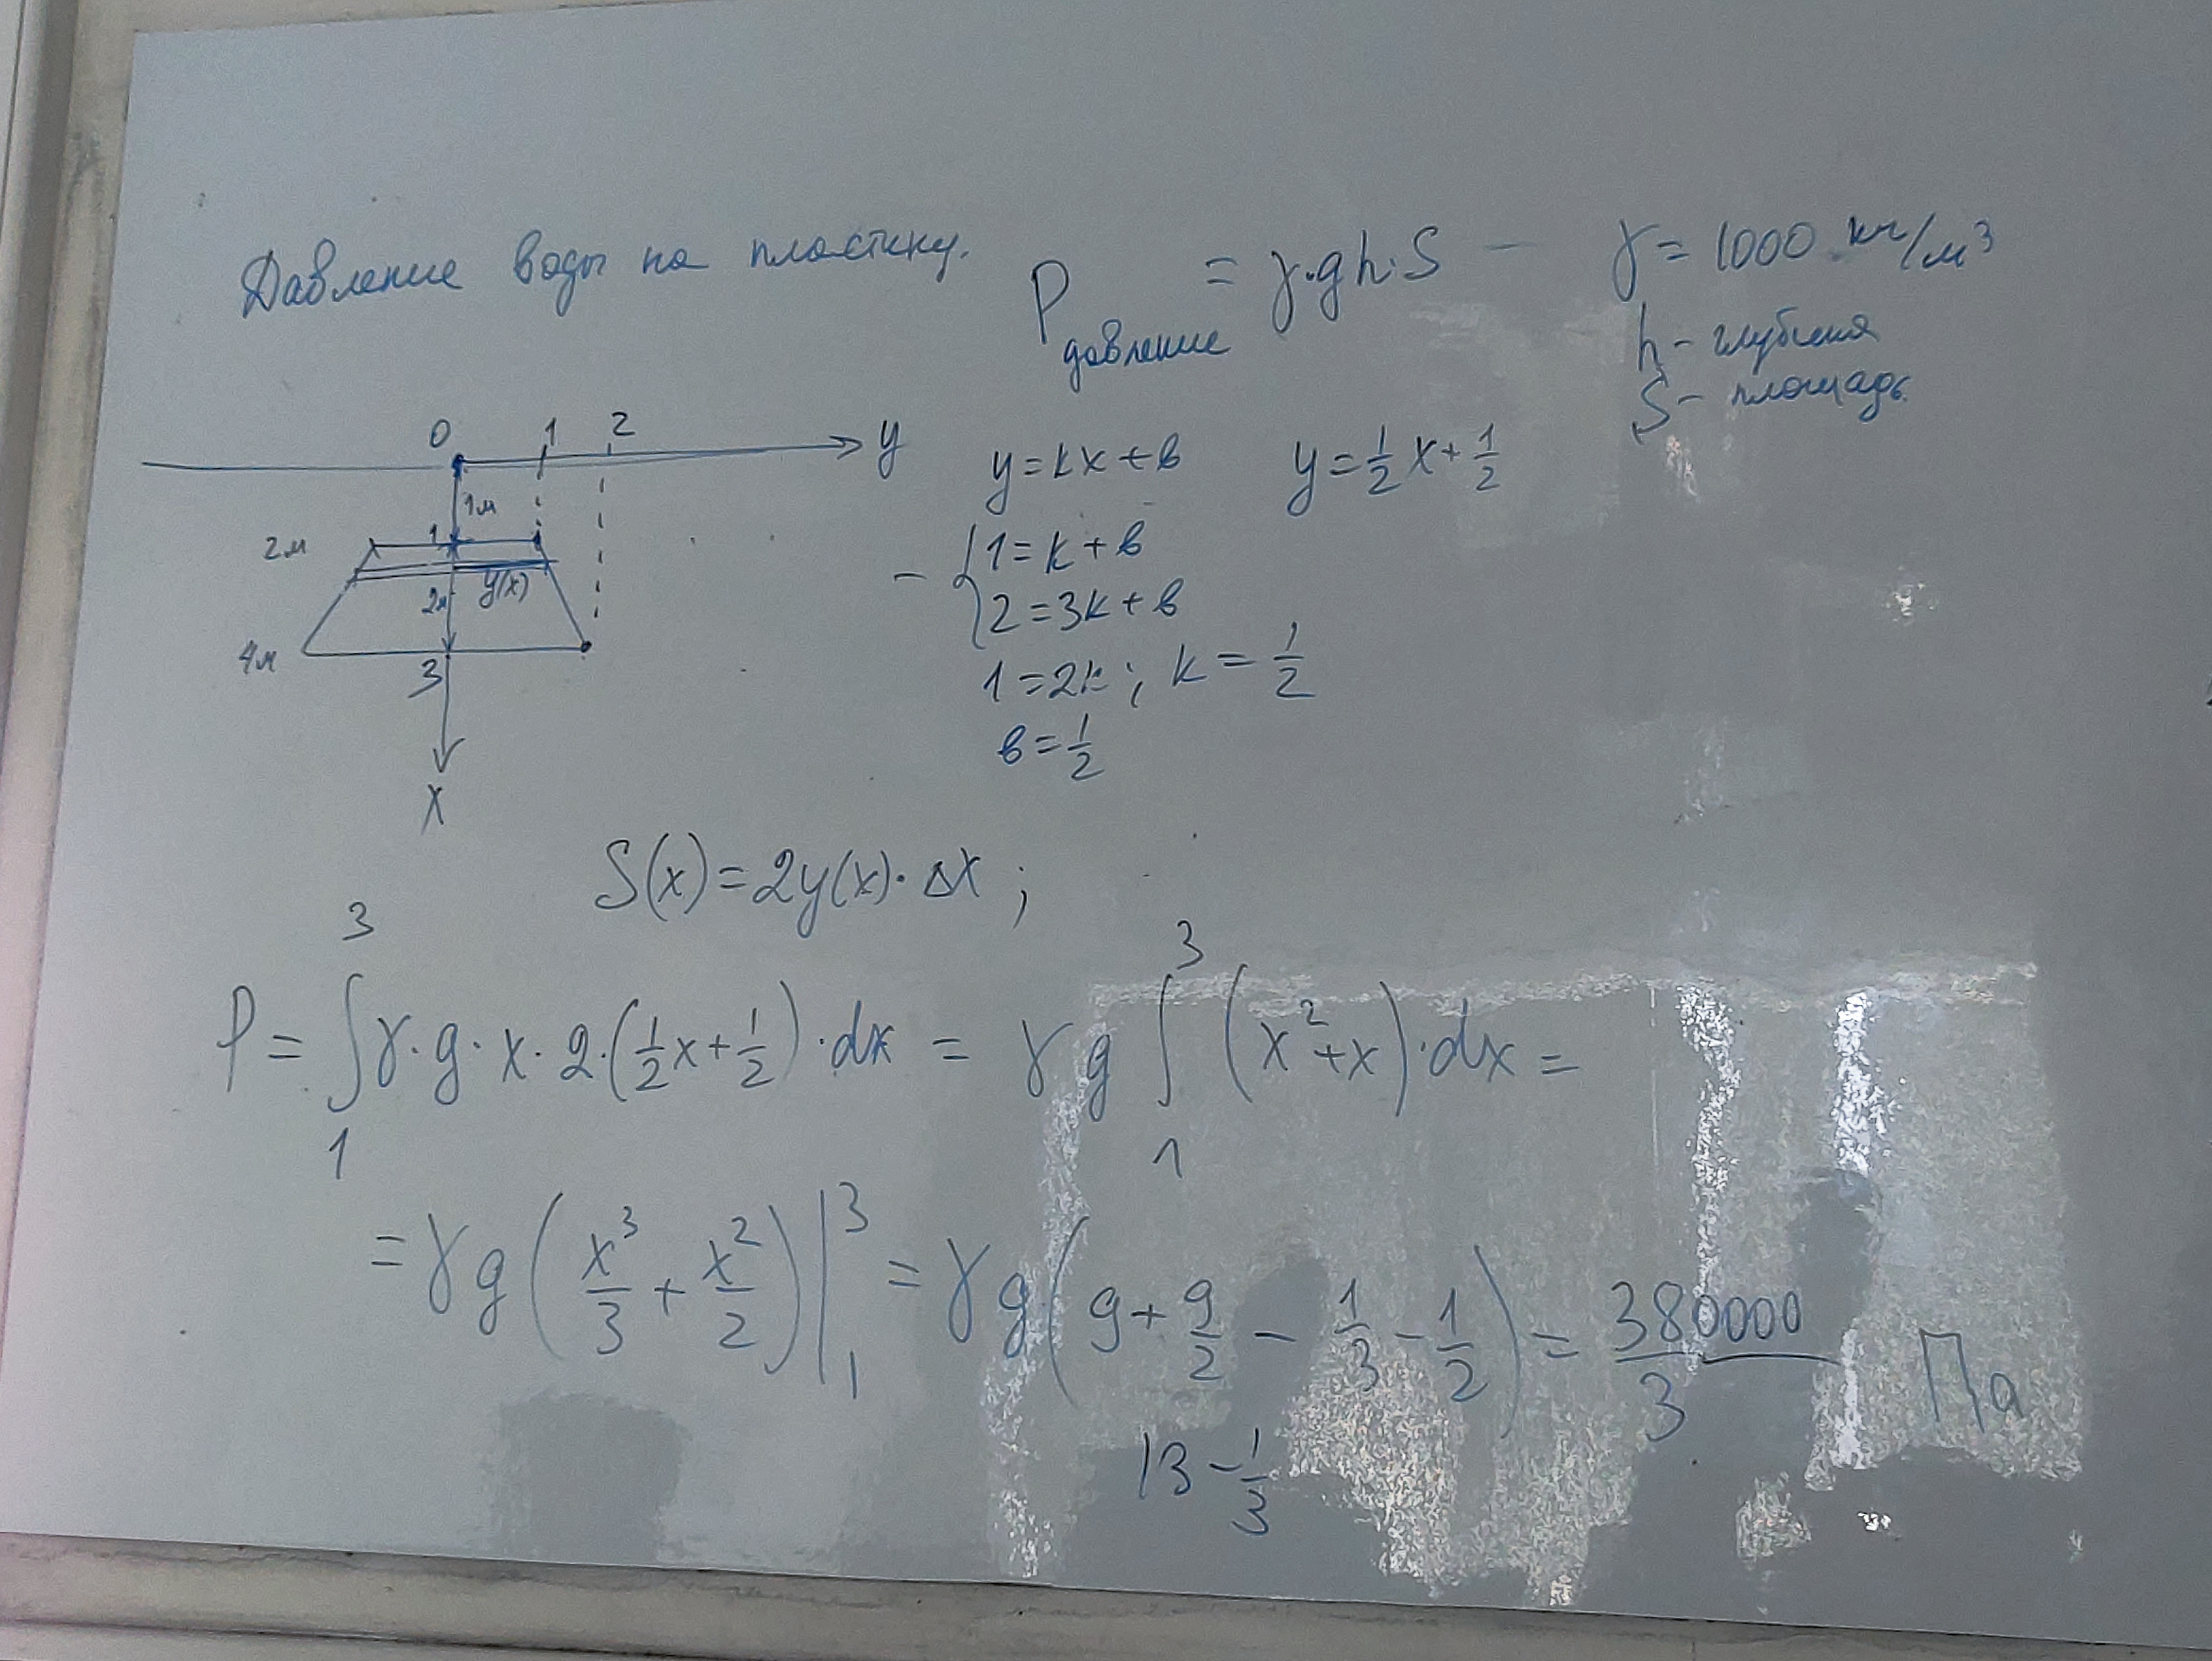 Давление воды на пластину.
P давление = γ·gh·S — γ = 1000 кг/м³
h - глубина
S - площадь.
0 1 2 y
1м
2м 1
y(x)
2м
4м
3
x
y = kx + в y = 1/2 x + 1/2
- { 1 = k + в
2 = 3k + в
1 = 2k ; k = 1/2
в = 1/2
S(x) = 2y(x)· Δx ;
P = ∫₁³ γ·g·x·2·(1/2 x + 1/2)·dx = γ g ∫₁³ (x² + x)·dx =
= γ g (x³/3 + x²/2) |₁³ = γ g (9 + 9/2 - 1/3 - 1/2) = 380000/3 Па
13 - 1/3